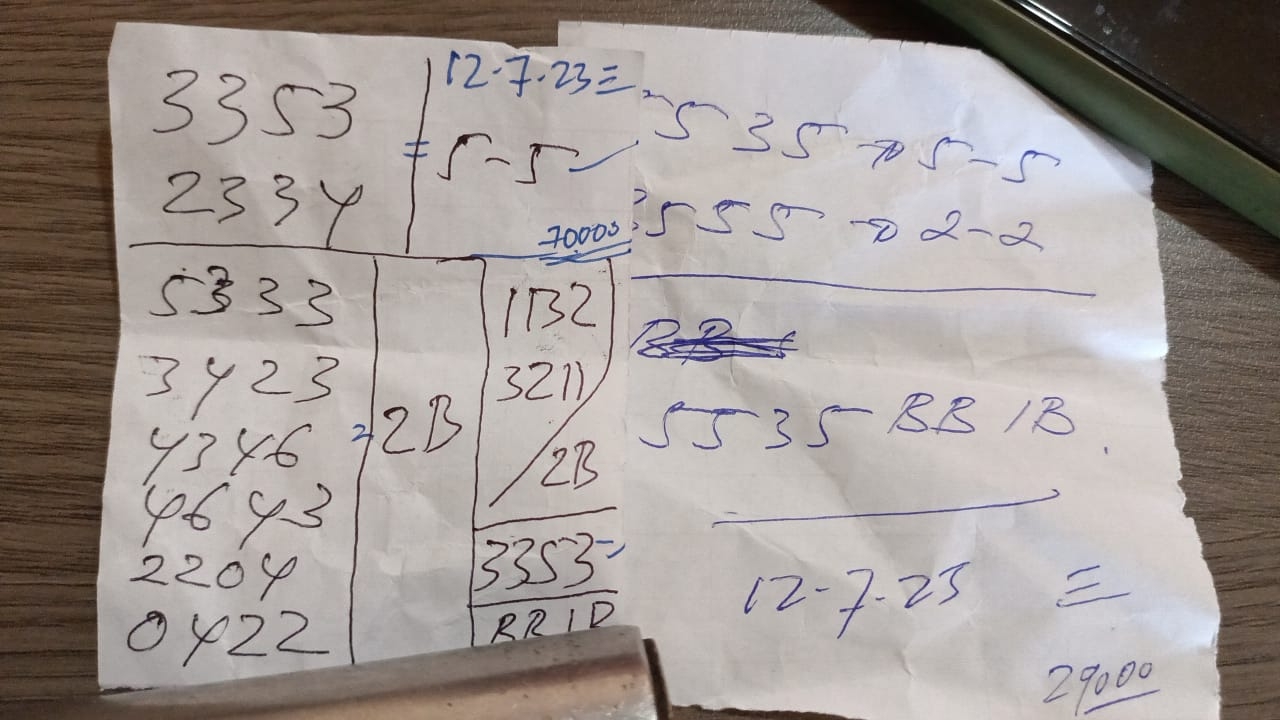 3353
2334
12-7-23 =
= 5-5
70000
5333
3423
4346
4643
2204
0422
= 2B
1132
3211
2B
3353 =
BB 1B
535 → 5-5
555 → 2-2
5535 BB 1B.
12-7-23 =
29000